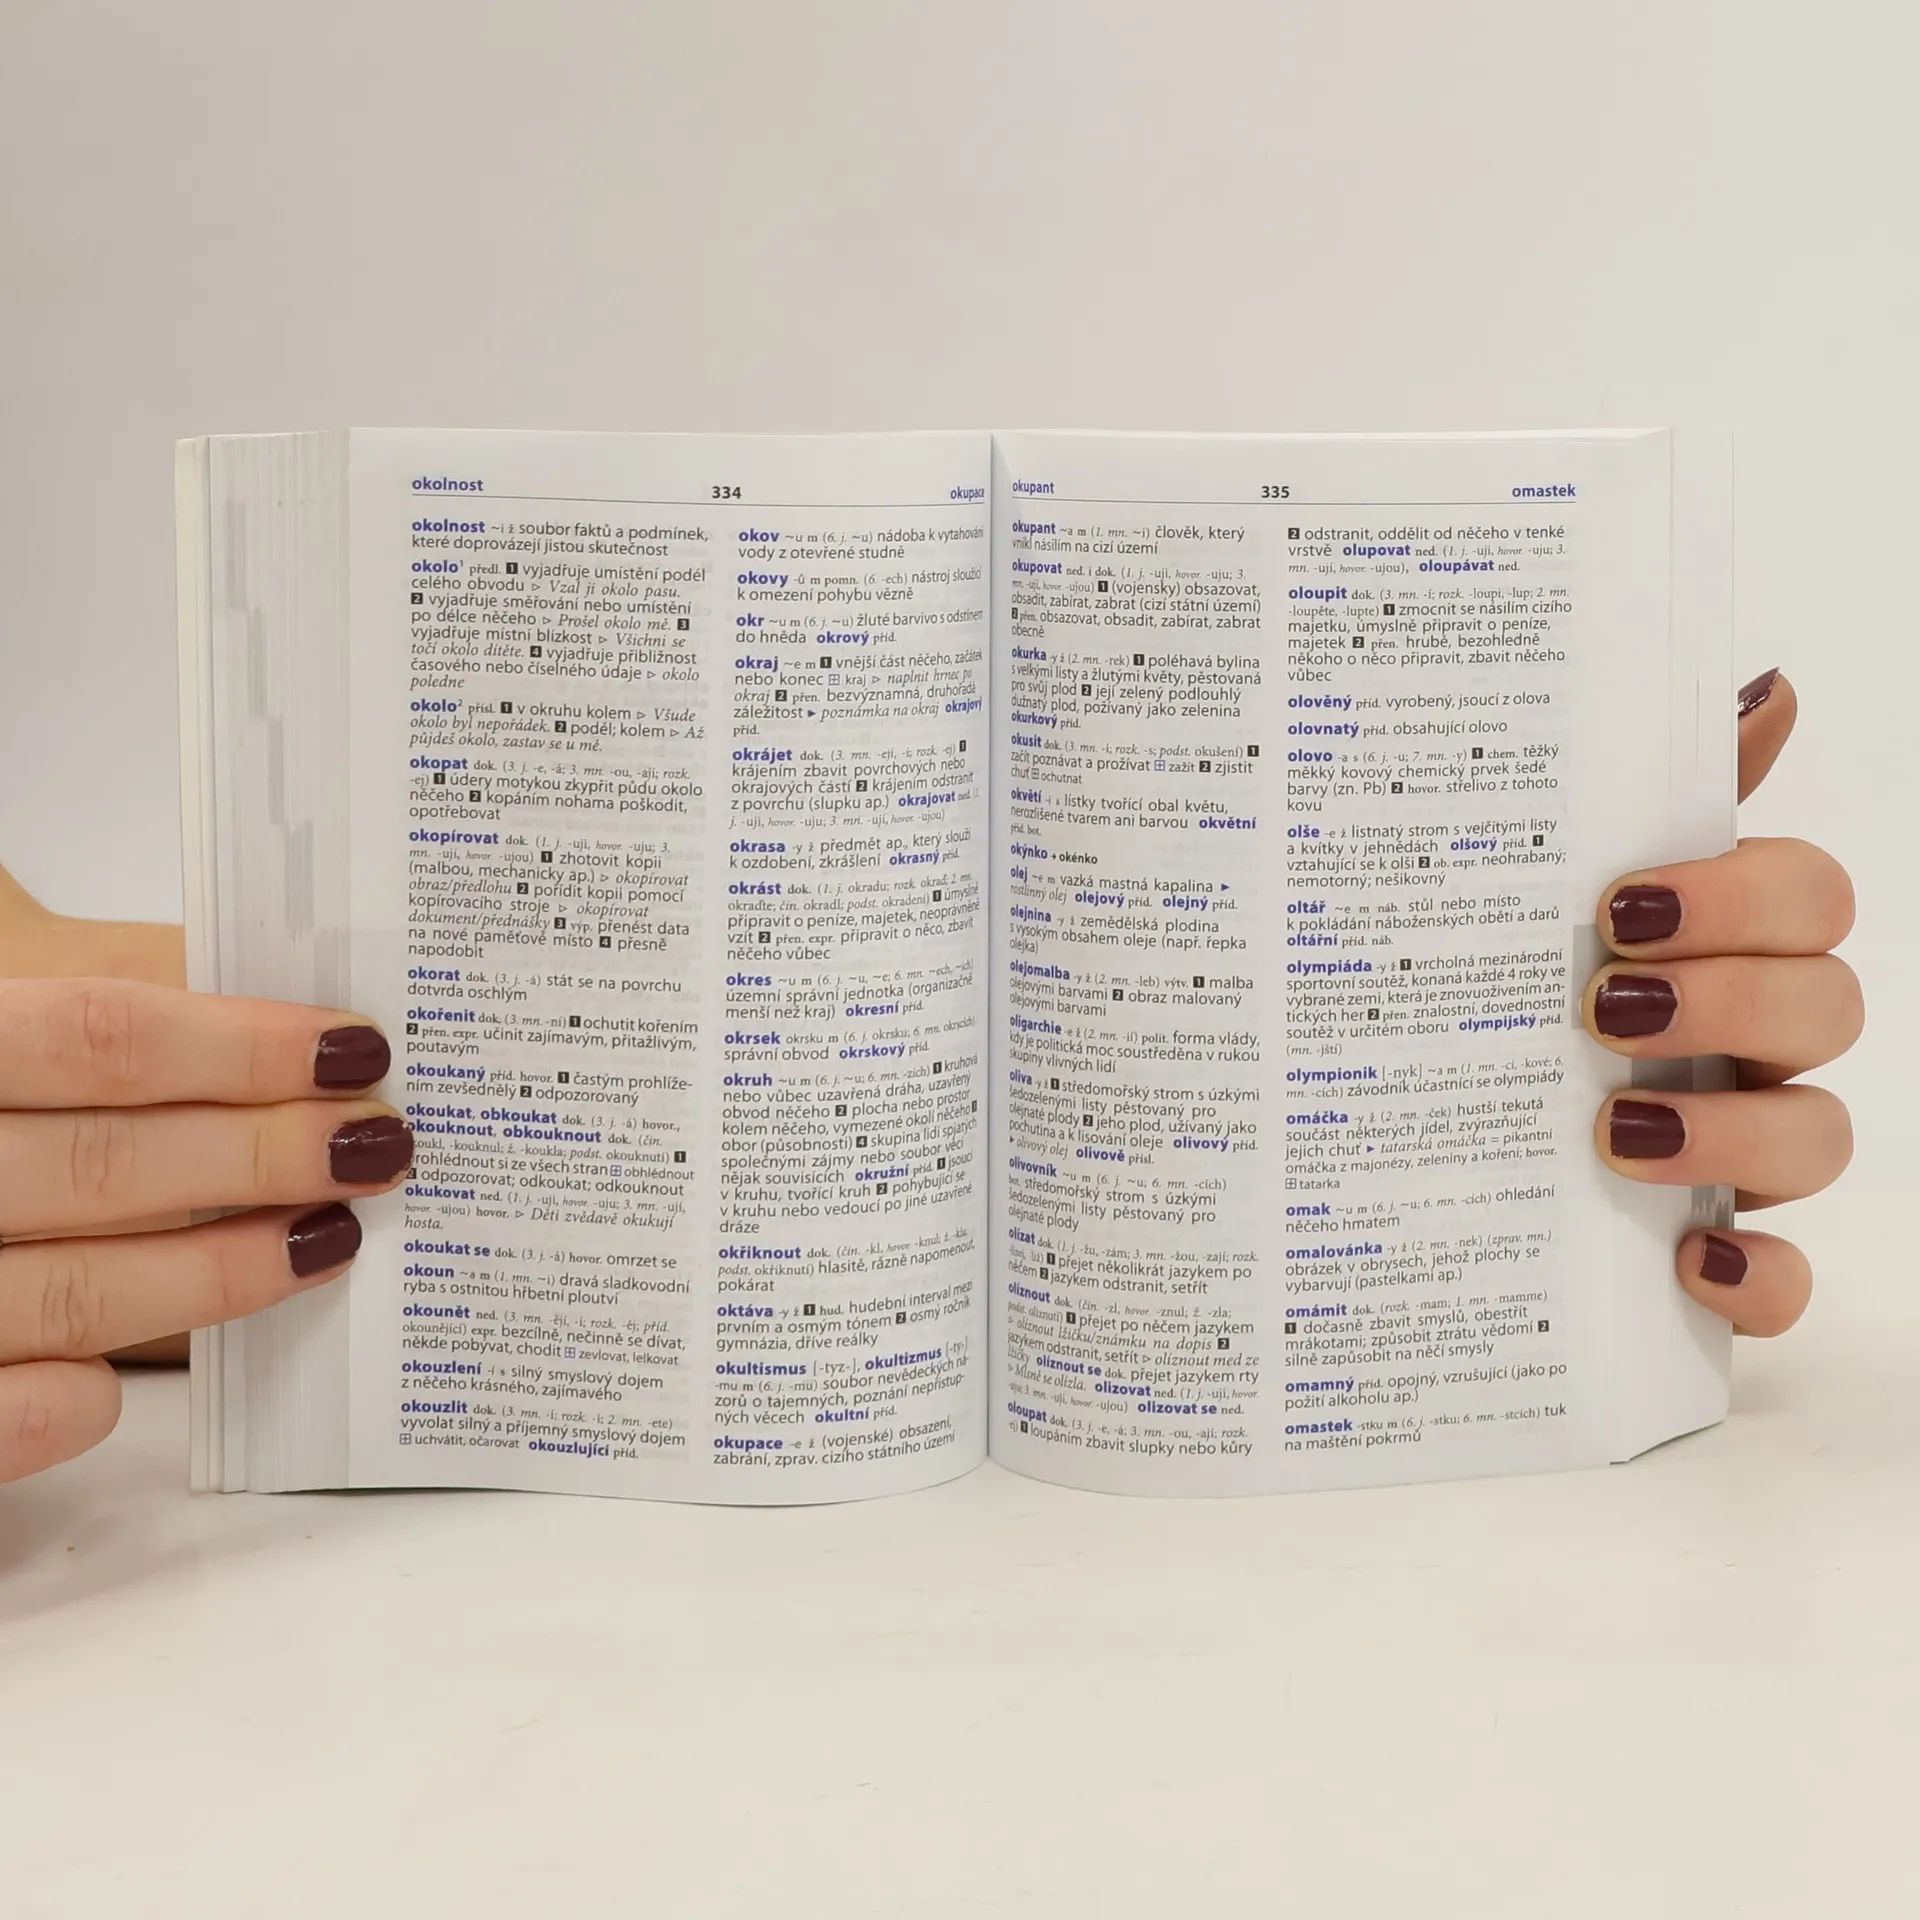 okolnost 334 okupace
okolnost ~i ž soubor faktů a podmínek,
které doprovázejí jistou skutečnost
okolo¹ předl. 1 vyjadřuje umístění podél
celého obvodu ▹ Vzal ji okolo pasu.
2 vyjadřuje směřování nebo umístění
po délce něčeho ▹ Prošel okolo mě. 3
vyjadřuje místní blízkost ▹ Všichni se
točí okolo dítěte. 4 vyjadřuje přibližnost
časového nebo číselného údaje ▹ okolo
poledne
okolo² přísl. 1 v okruhu kolem ▹ Všude
okolo byl nepořádek. 2 podél; kolem ▹ Až
půjdeš okolo, zastav se u mě.
okopat dok. (3. j. -e, -á; 3. mn. -ou, -ají; rozk.
-ej) 1 údery motykou zkypřit půdu okolo
něčeho 2 kopáním nohama poškodit,
opotřebovat
okopírovat dok. (1. j. -uji, hovor. -uju; 3.
mn. -ují, hovor. -ujou) 1 zhotovit kopii
(malbou, mechanicky ap.) ▹ okopírovat
obraz/předlohu 2 pořídit kopii pomocí
kopírovacího stroje ▹ okopírovat
dokument/přednášky 3 výp. přenést data
na nové paměťové místo 4 přesně
napodobit
okorat dok. (3. j. -á) stát se na povrchu
dotvrda oschlým
okořenit dok. (3. mn. -ní) 1 ochutit kořením
2 přen. expr. učinit zajímavým, přitažlivým,
poutavým
okoukaný příd. hovor. 1 častým prohlíže-
ním zevšednělý 2 odpozorovaný
okoukat, obkoukat dok. (3. j. -á) hovor.,
okouknout, obkouknout dok. (čin.
-koukl, -kouknul; ž. -koukla; podst. okouknutí) 1
prohlédnout si ze všech stran ⊞ obhlédnout
2 odpozorovat; odkoukat; odkouknout
okukovat ned. (1. j. -uji, hovor. -uju; 3. mn. -ují,
hovor. -ujou) hovor. ▹ Děti zvědavě okukují
hosta.
okoukat se dok. (3. j. -á) hovor. omrzet se
okoun ~a m (1. mn. ~i) dravá sladkovodní
ryba s ostnitou hřbetní ploutví
okounět ned. (3. mn. -ějí, -í; rozk. -ěj; příd.
okounějící) expr. bezcílně, nečinně se dívat,
někde pobývat, chodit ⊞ zevlovat, lelkovat
okouzlení -í s silný smyslový dojem
z něčeho krásného, zajímavého
okouzlit dok. (3. mn. -í; rozk. -i; 2. mn. -ete)
vyvolat silný a příjemný smyslový dojem
⊞ uchvátit, očarovat okouzlující příd.
okov ~u m (6. j. ~u) nádoba k vytahování
vody z otevřené studně
okovy -ů m pomn. (6. -ech) nástroj sloužící
k omezení pohybu vězně
okr ~u m (6. j. ~u) žluté barvivo s odstínem
do hněda okrový příd.
okraj ~e m 1 vnější část něčeho, začátek
nebo konec ⊞ kraj ▹ naplnit hrnec po
okraj 2 přen. bezvýznamná, druhořadá
záležitost ▸ poznámka na okraj okrajový
příd.
okrájet dok. (3. mn. -ejí, -í; rozk. -ej) 1
krájením zbavit povrchových nebo
okrajových částí 2 krájením odstranit
z povrchu (slupku ap.) okrajovat ned. (1.
j. -uji, hovor. -uju; 3. mn. -ují, hovor. -ujou)
okrasa -y ž předmět ap., který slouží
k ozdobení, zkrášlení okrasný příd.
okrást dok. (1. j. okradu; rozk. okraď, 2. mn.
okraďte; čin. okradl; podst. okradení) 1 úmyslně
připravit o peníze, majetek, neoprávněně
vzít 2 přen. expr. připravit o něco, zbavit
něčeho vůbec
okres ~u m (6. j. ~u, ~e; 6. mn. ~ech, ~ích)
územní správní jednotka (organizačně
menší než kraj) okresní příd.
okrsek okrsku m (6. j. okrsku; 6. mn. okrscích)
správní obvod okrskový příd.
okruh ~u m (6. j. ~u; 6. mn. -zích) 1 kruhová
nebo vůbec uzavřená dráha, uzavřený
obvod něčeho 2 plocha nebo prostor
kolem něčeho, vymezené okolí něčeho 3
obor (působnosti) 4 skupina lidí spjatých
společnými zájmy nebo soubor věcí
nějak souvisících okružní příd. 1 jsoucí
v kruhu, tvořící kruh 2 pohybující se
v kruhu nebo vedoucí po jiné uzavřené
dráze
okřiknout dok. (čin. -kl, hovor. -knul; ž. -kla;
podst. okřiknutí) hlasitě, rázně napomenout,
pokárat
oktáva -y ž 1 hud. hudební interval mezi
prvním a osmým tónem 2 osmý ročník
gymnázia, dříve reálky
okultismus [-tyz-], okultizmus [-ty-]
-mu m (6. j. -mu) soubor nevědeckých ná-
zorů o tajemných, poznání nepřístup-
ných věcech okultní příd.
okupace -e ž (vojenské) obsazení,
zabrání, zprav. cizího státního území
okupant 335 omastek
okupant ~a m (1. mn. ~i) člověk, který
vnikl násilím na cizí území
okupovat ned. i dok. (1. j. -uji, hovor. -uju; 3.
mn. -ují, hovor. -ujou) 1 (vojensky) obsazovat,
obsadit, zabírat, zabrat (cizí státní území)
2 přen. obsazovat, obsadit, zabírat, zabrat
obecně
okurka -y ž (2. mn. -rek) 1 poléhavá bylina
s velkými listy a žlutými květy, pěstovaná
pro svůj plod 2 její zelený podlouhlý
dužnatý plod, požívaný jako zelenina
okurkový příd.
okusit dok. (3. mn. -í; rozk. -s; podst. okušení) 1
začít poznávat a prožívat ⊞ zažít 2 zjistit
chuť ⊞ ochutnat
okvětí -í s lístky tvořící obal květu,
nerozlišené tvarem ani barvou okvětní
příd. bot.
okýnko → okénko
olej ~e m vazká mastná kapalina ▸
rostlinný olej olejový příd. olejný příd.
olejnina -y ž zemědělská plodina
s vysokým obsahem oleje (např. řepka
olejka)
olejomalba -y ž (2. mn. -leb) výtv. 1 malba
olejovými barvami 2 obraz malovaný
olejovými barvami
oligarchie -e ž (2. mn. -ií) polit. forma vlády,
kdy je politická moc soustředěna v rukou
skupiny vlivných lidí
oliva -y ž 1 středomořský strom s úzkými
šedozelenými listy pěstovaný pro
olejnaté plody 2 jeho plod, užívaný jako
pochutina a k lisování oleje olivový příd.
▸ olivový olej olivově přísl.
olivovník ~u m (6. j. ~u; 6. mn. -cích)
bot. středomořský strom s úzkými
šedozelenými listy pěstovaný pro
olejnaté plody
olízat dok. (1. j. -žu, -zám; 3. mn. -žou, -zají; rozk.
-lízej, -liž) 1 přejet několikrát jazykem po
něčem 2 jazykem odstranit, setřít
olíznout dok. (čin. -zl, hovor. -znul; ž. -zla;
podst. olíznutí) 1 přejet po něčem jazykem
▹ olíznout lžičku/známku na dopis 2
jazykem odstranit, setřít ▹ olíznout med ze
lžičky olíznout se dok. přejet jazykem rty
▹ Mlsně se olízla. olizovat ned. (1. j. -uji, hovor.
-uju; 3. mn. -ují, hovor. -ujou) olizovat se ned.
oloupat dok. (3. j. -e, -á; 3. mn. -ou, -ají; rozk.
-ej) 1 loupáním zbavit slupky nebo kůry
2 odstranit, oddělit od něčeho v tenké
vrstvě olupovat ned. (1. j. -uji, hovor. -uju; 3.
mn. -ují, hovor. -ujou), oloupávat ned.
oloupit dok. (3. mn. -í; rozk. -loupi, -lup; 2. mn.
-loupěte, -lupte) 1 zmocnit se násilím cizího
majetku, úmyslně připravit o peníze,
majetek 2 přen. hrubě, bezohledně
někoho o něco připravit, zbavit něčeho
vůbec
olověný příd. vyrobený, jsoucí z olova
olovnatý příd. obsahující olovo
olovo -a s (6. j. -u; 7. mn. -y) 1 chem. těžký
měkký kovový chemický prvek šedé
barvy (zn. Pb) 2 hovor. střelivo z tohoto
kovu
olše -e ž listnatý strom s vejčitými listy
a kvítky v jehnědách olšový příd. 1
vztahující se k olši 2 ob. expr. neohrabaný;
nemotorný; nešikovný
oltář ~e m náb. stůl nebo místo
k pokládání náboženských obětí a darů
oltářní příd. náb.
olympiáda -y ž 1 vrcholná mezinárodní
sportovní soutěž, konaná každé 4 roky ve
vybrané zemi, která je znovuoživením an-
tických her 2 přen. znalostní, dovednostní
soutěž v určitém oboru olympijský příd.
(mn. -jští)
olympionik [-nyk] ~a m (1. mn. -ci, -kové; 6.
mn. -cích) závodník účastnící se olympiády
omáčka -y ž (2. mn. -ček) hustší tekutá
součást některých jídel, zvýrazňující
jejich chuť ▸ tatarská omáčka = pikantní
omáčka z majonézy, zeleniny a koření; hovor.
⊞ tatarka
omak ~u m (6. j. ~u; 6. mn. -cích) ohledání
něčeho hmatem
omalovánka -y ž (2. mn. -nek) (zprav. mn.)
obrázek v obrysech, jehož plochy se
vybarvují (pastelkami ap.)
omámit dok. (rozk. -mam; 1. mn. -mamme)
1 dočasně zbavit smyslů, obestřít
mrákotami; způsobit ztrátu vědomí 2
silně zapůsobit na něčí smysly
omamný příd. opojný, vzrušující (jako po
požití alkoholu ap.)
omastek -stku m (6. j. -stku; 6. mn. -stcích) tuk
na maštění pokrmů